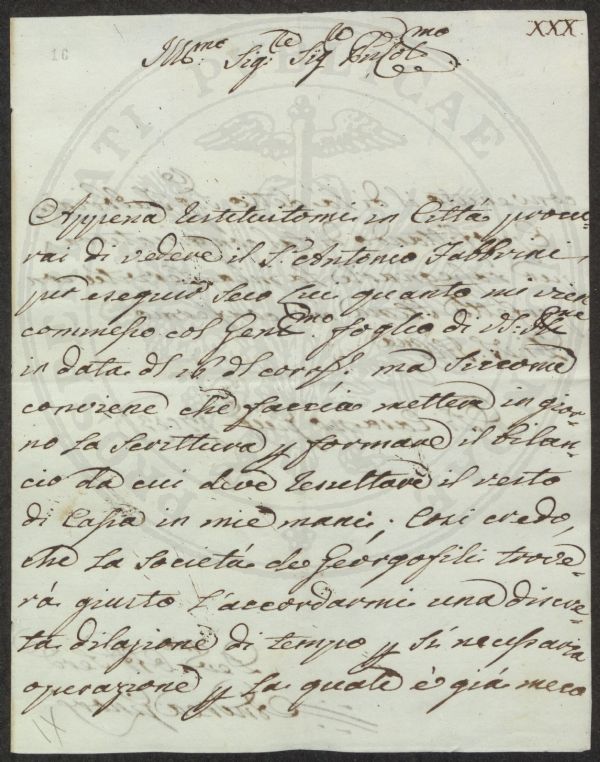 XXX.
16
Ill.mo Sig.re Sig.re
Appena restituitomi in Città procu-
rai di vedere il S.r Antonio Fabbrini
per eseguir seco lui quanto mi vien
commesso col Gent.mo foglio di VS. Ill.
in data del 16 del corr.e ma siccome
conviene che faccia mettere in gior-
no la scrittura, e formare il bilan-
cio da cui deve resultare il resto
di Cassa in mie mani; Così credo,
che la Società de Georgofili trove-
rà giusto l'accordarmi una discre-
ta dilazione di tempo p sì necessaria
operazione p la quale è già meco